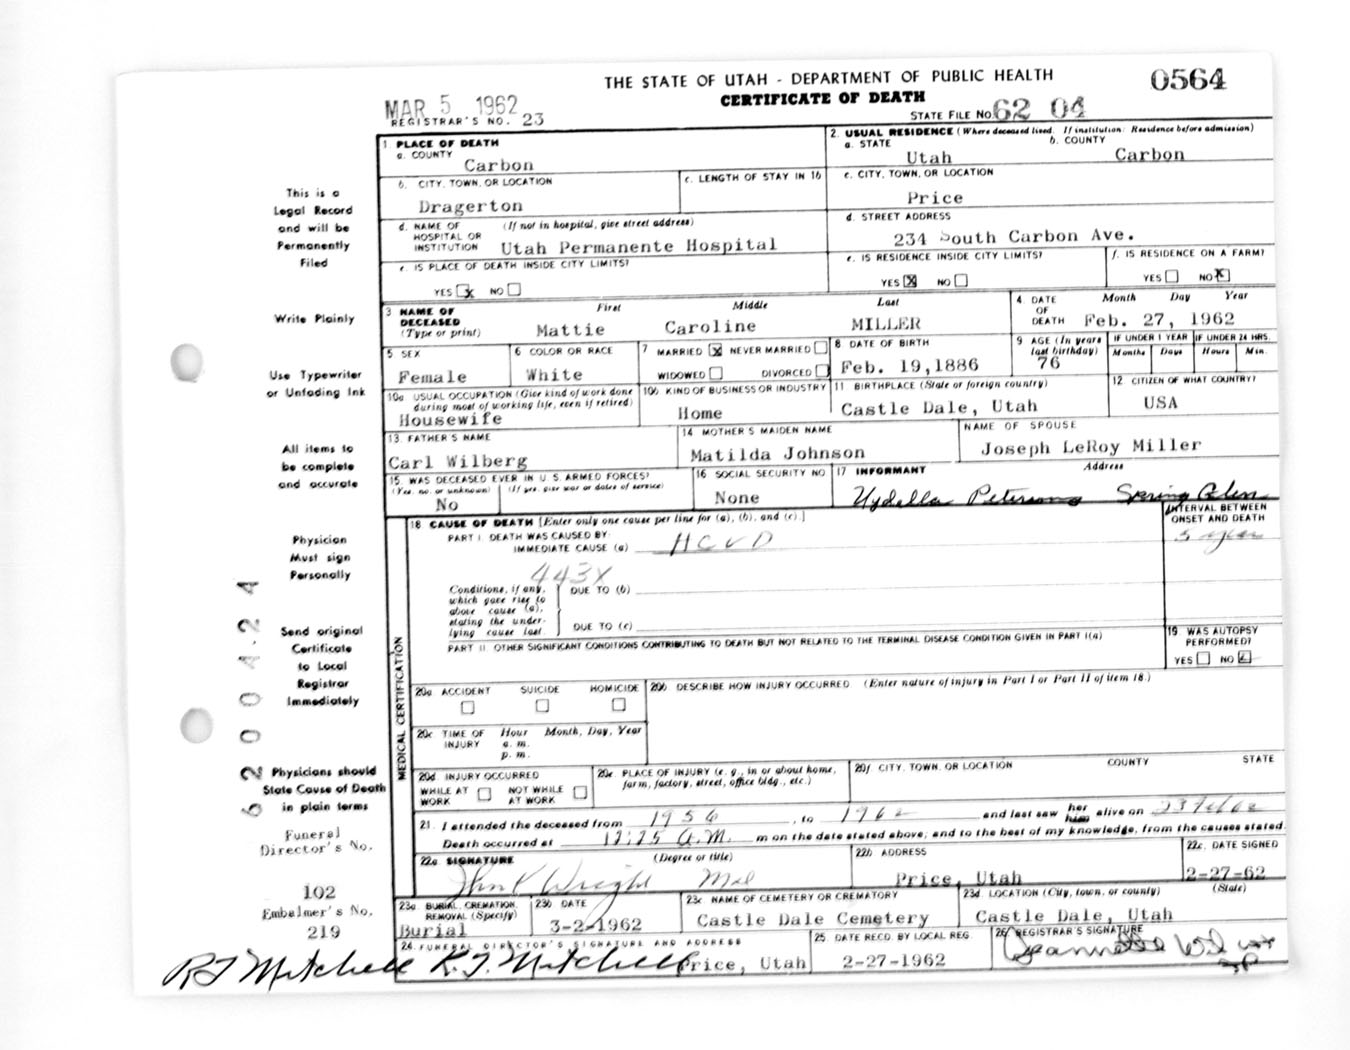 THE STATE OF UTAH - DEPARTMENT OF PUBLIC HEALTH
0564
CERTIFICATE OF DEATH
MAR 5 1962
REGISTRAR'S NO. 23
STATE FILE NO. 62 04
This is a
Legal Record
and will be
Permanently
Filed
Write Plainly
Use Typewriter
or Unfading Ink
All items to
be complete
and accurate
Physician
Must sign
Personally
Send original
Certificate
to Local
Registrar
Immediately
Physicians should
State Cause of Death
in plain terms
Funeral
Director's No.
102
Embalmer's No.
219
1 PLACE OF DEATH
a. COUNTY
Carbon
2. USUAL RESIDENCE (Where deceased lived. If institution: Residence before admission)
a. STATE
Utah
b. COUNTY
Carbon
b. CITY, TOWN, OR LOCATION
Dragerton
c. LENGTH OF STAY IN 1b
c. CITY, TOWN, OR LOCATION
Price
d. NAME OF HOSPITAL OR INSTITUTION (If not in hospital, give street address)
Utah Permanente Hospital
d. STREET ADDRESS
234 South Carbon Ave.
e. IS PLACE OF DEATH INSIDE CITY LIMITS?
YES x NO
e. IS RESIDENCE INSIDE CITY LIMITS?
YES X NO
f. IS RESIDENCE ON A FARM?
YES NO X
3 NAME OF DECEASED (Type or print)
First Middle Last
Mattie Caroline MILLER
4. DATE OF DEATH
Month Day Year
Feb. 27, 1962
5 SEX
Female
6 COLOR OR RACE
White
7 MARRIED X NEVER MARRIED
WIDOWED DIVORCED
8 DATE OF BIRTH
Feb. 19,1886
9 AGE (In years last birthday)
76
IF UNDER 1 YEAR
Months Days
IF UNDER 24 HRS.
Hours Min.
10a USUAL OCCUPATION (Give kind of work done during most of working life, even if retired)
Housewife
10b KIND OF BUSINESS OR INDUSTRY
Home
11 BIRTHPLACE (State or foreign country)
Castle Dale, Utah
12 CITIZEN OF WHAT COUNTRY?
USA
13. FATHER'S NAME
Carl Wilberg
14 MOTHER'S MAIDEN NAME
Matilda Johnson
NAME OF SPOUSE
Joseph LeRoy Miller
15. WAS DECEASED EVER IN U. S. ARMED FORCES?
(Yes, no, or unknown) (If yes, give war or dates of service)
No
16 SOCIAL SECURITY NO
None
17 INFORMANT Address
Peterson Spring Glen
18 CAUSE OF DEATH [Enter only one cause per line for (a), (b), and (c).]
INTERVAL BETWEEN ONSET AND DEATH
PART I. DEATH WAS CAUSED BY:
IMMEDIATE CAUSE (a) HCVD
5 year
443X
Conditions, if any, which gave rise to above cause (a), stating the underlying cause last.
DUE TO (b)
DUE TO (c)
PART II. OTHER SIGNIFICANT CONDITIONS CONTRIBUTING TO DEATH BUT NOT RELATED TO THE TERMINAL DISEASE CONDITION GIVEN IN PART I(a)
19 WAS AUTOPSY PERFORMED?
YES NO
MEDICAL CERTIFICATION
20a ACCIDENT SUICIDE HOMICIDE
20b DESCRIBE HOW INJURY OCCURRED (Enter nature of injury in Part I or Part II of item 18.)
20c TIME OF INJURY Hour Month, Day, Year
a. m.
p. m.
20d INJURY OCCURRED
WHILE AT WORK NOT WHILE AT WORK
20e. PLACE OF INJURY (e. g., in or about home, farm, factory, street, office bldg., etc.)
20f. CITY, TOWN, OR LOCATION COUNTY STATE
21. I attended the deceased from 1956, to 1962 and last saw her him alive on
Death occurred at A.M. m on the date stated above; and to the best of my knowledge, from the causes stated.
22a SIGNATURE (Degree or title)
Wright MD
22b ADDRESS
Price, Utah
22c. DATE SIGNED
2-27-62
23a BURIAL, CREMATION, REMOVAL (Specify)
Burial
23b DATE
3-2-1962
23c NAME OF CEMETERY OR CREMATORY
Castle Dale Cemetery
23d LOCATION (City, town, or county) (State)
Castle Dale, Utah
24. FUNERAL DIRECTOR'S SIGNATURE AND ADDRESS
R T Mitchell R. T. Mitchell Price, Utah
25. DATE RECD. BY LOCAL REG.
2-27-1962
26 REGISTRAR'S SIGNATURE
Jeannette